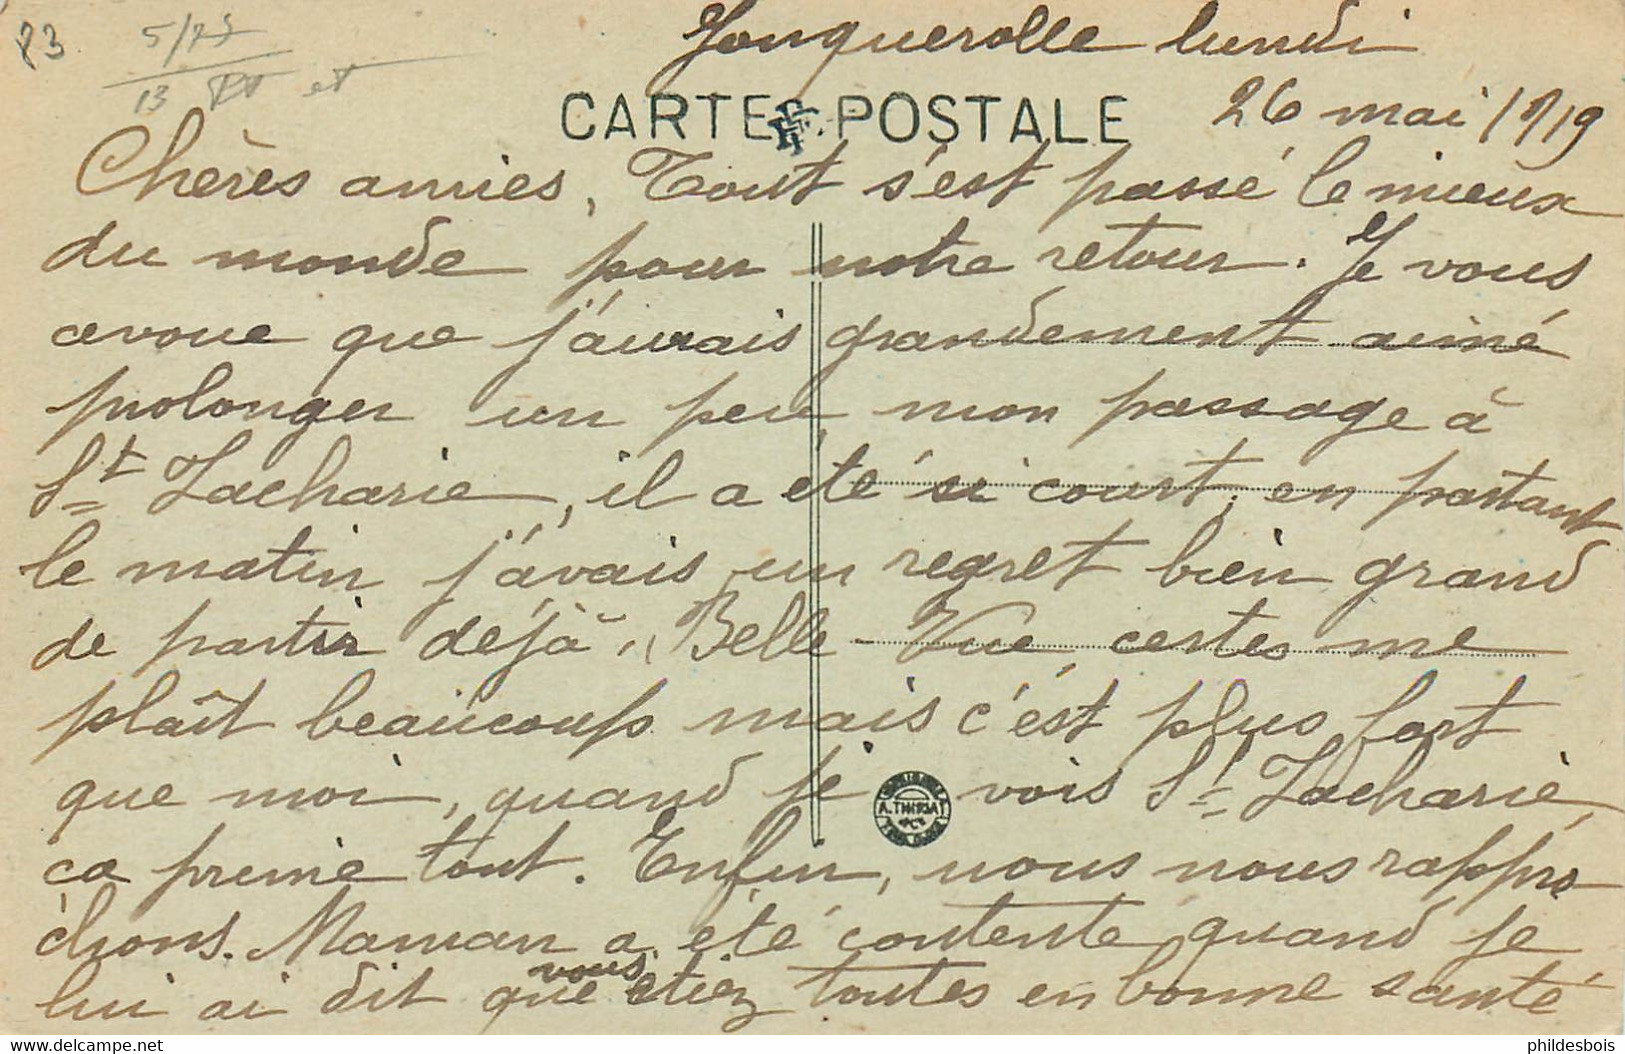 83
5/75
13
Jonquerolle lundi
CARTE POSTALE
26 mai 1919
Chères amies, Tout s'est passé le mieux
du monde pour notre retour. Je vous
avoue que j'aurais grandement aimé
prolonger un peu, mon passage à
St Zacharie, il a été si court, en partant
le matin j'avais un regret bien grand
de partir déjà. Belle-Vue, certes me
plaît beaucoup mais c'est plus fort
que moi, quand je vois St Zacharie,
A. THIRIAT
ça prime tout. Enfin, nous nous rappro
chons. Maman a été contente quand je
lui ai dit que vous étiez toutes en bonne santé
delcampe.net
phildesbois